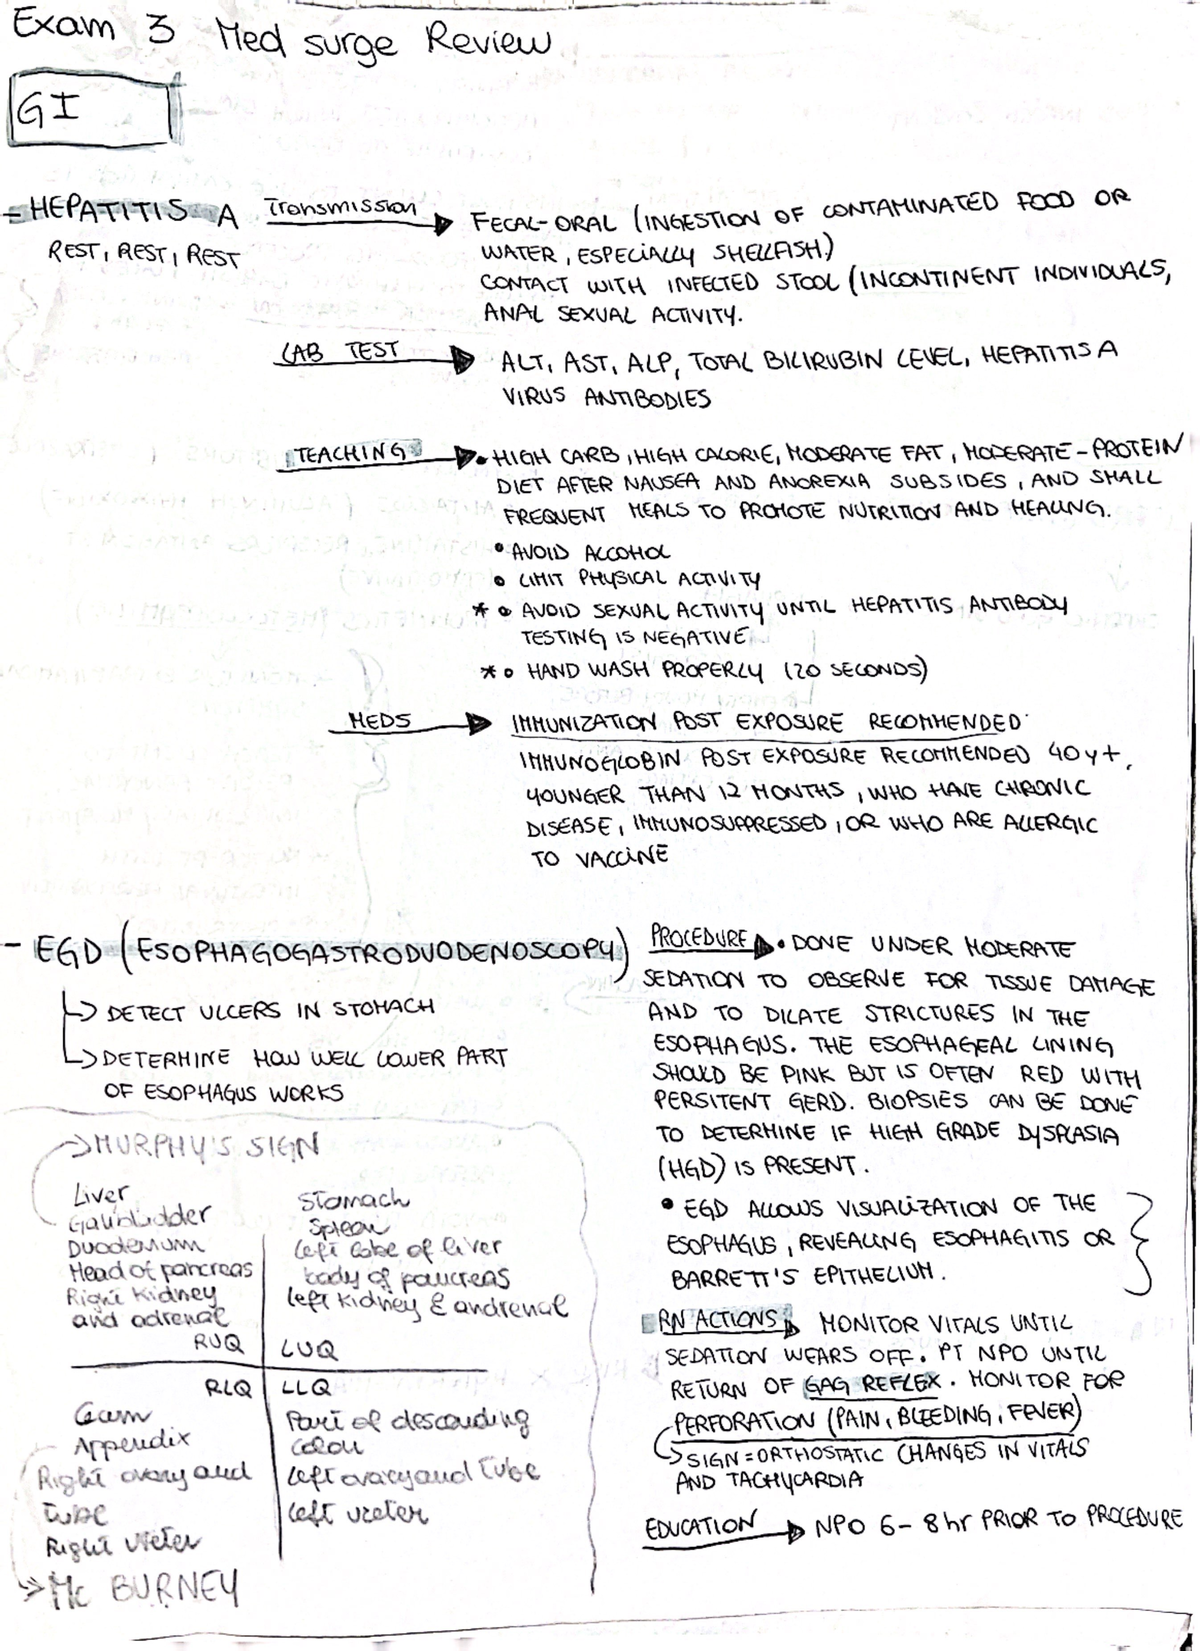 Exam 3 Med surge Review
GI
- HEPATITIS A
REST, REST, REST
Transmission
FECAL-ORAL (INGESTION OF CONTAMINATED FOOD OR
WATER, ESPECIALLY SHELLFISH)
CONTACT WITH INFECTED STOOL (INCONTINENT INDIVIDUALS,
ANAL SEXUAL ACTIVITY.
LAB TEST
ALT, AST, ALP, TOTAL BILIRUBIN LEVEL, HEPATITIS A
VIRUS ANTIBODIES
TEACHING
• HIGH CARB, HIGH CALORIE, MODERATE FAT, MODERATE-PROTEIN
DIET AFTER NAUSEA AND ANOREXIA SUBSIDES, AND SMALL
FREQUENT MEALS TO PROMOTE NUTRITION AND HEALING.
• AVOID ALCOHOL
• LIMIT PHYSICAL ACTIVITY
* • AVOID SEXUAL ACTIVITY UNTIL HEPATITIS ANTIBODY
TESTING IS NEGATIVE
* • HAND WASH PROPERLY (20 SECONDS)
MEDS
IMMUNIZATION POST EXPOSURE RECOMMENDED
IMMUNOGLOBIN POST EXPOSURE RECOMMENDED 40y+,
YOUNGER THAN 12 MONTHS, WHO HAVE CHRONIC
DISEASE, IMMUNOSUPRESSED, OR WHO ARE ALLERGIC
TO VACCINE
- EGD (ESOPHAGOGASTRODUODENOSCOPY)
DETECT ULCERS IN STOMACH
DETERMINE HOW WELL LOWER PART
OF ESOPHAGUS WORKS
PROCEDURE
• DONE UNDER MODERATE
SEDATION TO OBSERVE FOR TISSUE DAMAGE
AND TO DILATE STRICTURES IN THE
ESOPHAGUS. THE ESOPHAGEAL LINING
SHOULD BE PINK BUT IS OFTEN RED WITH
PERSITENT GERD. BIOPSIES CAN BE DONE
TO DETERMINE IF HIGH GRADE DYSPLASIA
(HGD) IS PRESENT.
• EGD ALLOWS VISUALIZATION OF THE
ESOPHAGUS, REVEALING ESOPHAGITIS OR
BARRETT'S EPITHELIUM.
RN ACTIONS
MONITOR VITALS UNTIL
SEDATION WEARS OFF. PT NPO UNTIL
RETURN OF GAG REFLEX. MONITOR FOR
PERFORATION (PAIN, BLEEDING, FEVER)
SIGN = ORTHOSTATIC CHANGES IN VITALS
AND TACHYCARDIA
EDUCATION
NPO 6-8hr PRIOR TO PROCEDURE
MURPHY'S SIGN
Liver
Gallbladder
Duodenum
Head of pancreas
Right Kidney
and adrenal
RUQ
Stomach
Spleen
Left lobe of liver
body of pancreas
left kidney & andrenal
LUQ
RLQ
Cecum
Appendix
Right ovary and
Tube
Right Ureter
LLQ
Part of descending
colon
left ovary and Tube
left ureter
Mc BURNEY